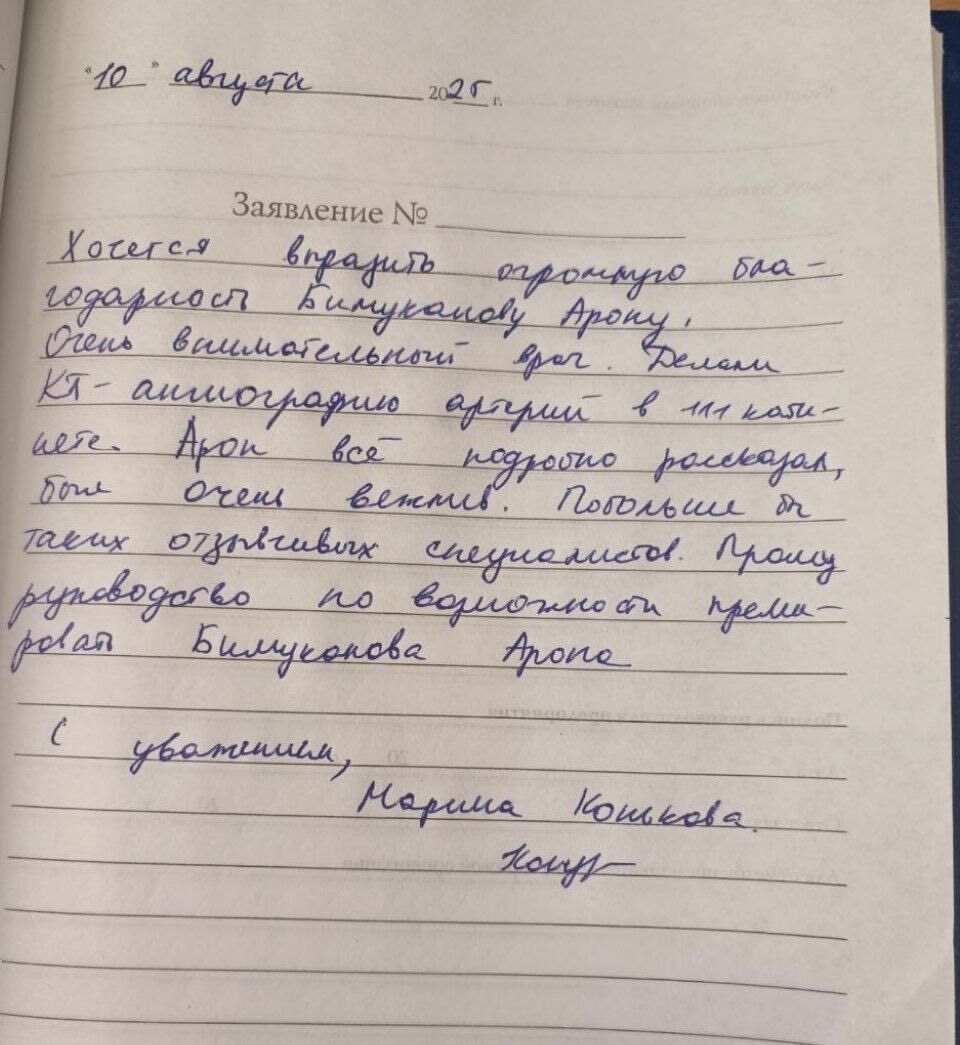 "10" августа 2025 г.
Заявление №
Хочется выразить огромную бла-
годарность Бимуканову Арону.
Очень внимательный врач. Делали
КТ-ангиографию артерий в 111 каби-
нете. Арон всё подробно рассказал,
был очень вежлив. Побольше бы
таких отзывчивых специалистов. Прошу
руководство по возможности преми-
ровать Бимуканова Арона
С уважением,
Марина Конькова.